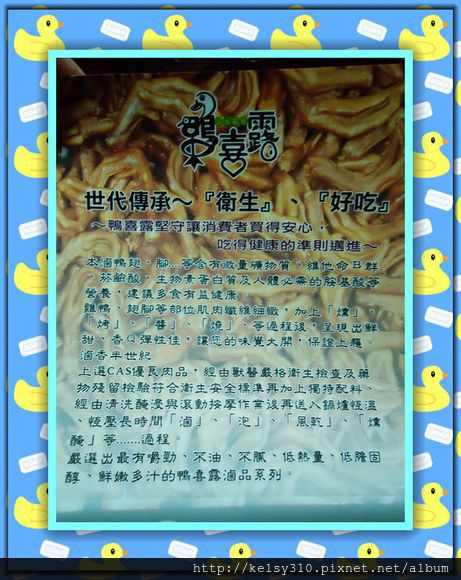 鴨喜露
世代傳承～『衛生』、『好吃』
～鴨喜露堅守讓消費者買得安心，
吃得健康的準則邁進～
本滷鴨翅、腳....等含有微量礦物質、維他命B群
、菸鹼酸、生物素蛋白質及人體必需的胺基酸等
營養，建議多食有益健康。
雞鴨、翅腳等部位肌肉纖維細緻，加上「燻」、
「烤」、「醬」、「燒」、等過程後，呈現出鮮
甜、香Q彈性佳，讓您的味覺大開，保證上癮。
滷香半世紀
上選CAS優良肉品，經由獸醫嚴格衛生檢查及藥
物殘留檢驗符合衛生安全標準再加上獨特配料、
經由清洗醃浸與滾動按摩作業後再送入鍋爐恆溫
、恆壓長時間「滷」、「泡」、「風乾」、「燻
醃」等.......過程。
嚴選出最有嚼勁、不油、不膩、低熱量、低膽固
醇、鮮嫩多汁的鴨喜露滷品系列。
SOAP
http://kelsy310.pixnet.net/album